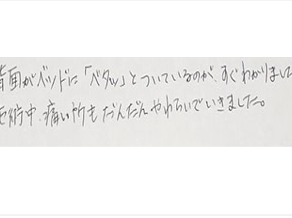 背面がベッドに「ベタッ」とついているのが、すぐわかりました
施術中、痛い所もだんだんやわらいでいきました。